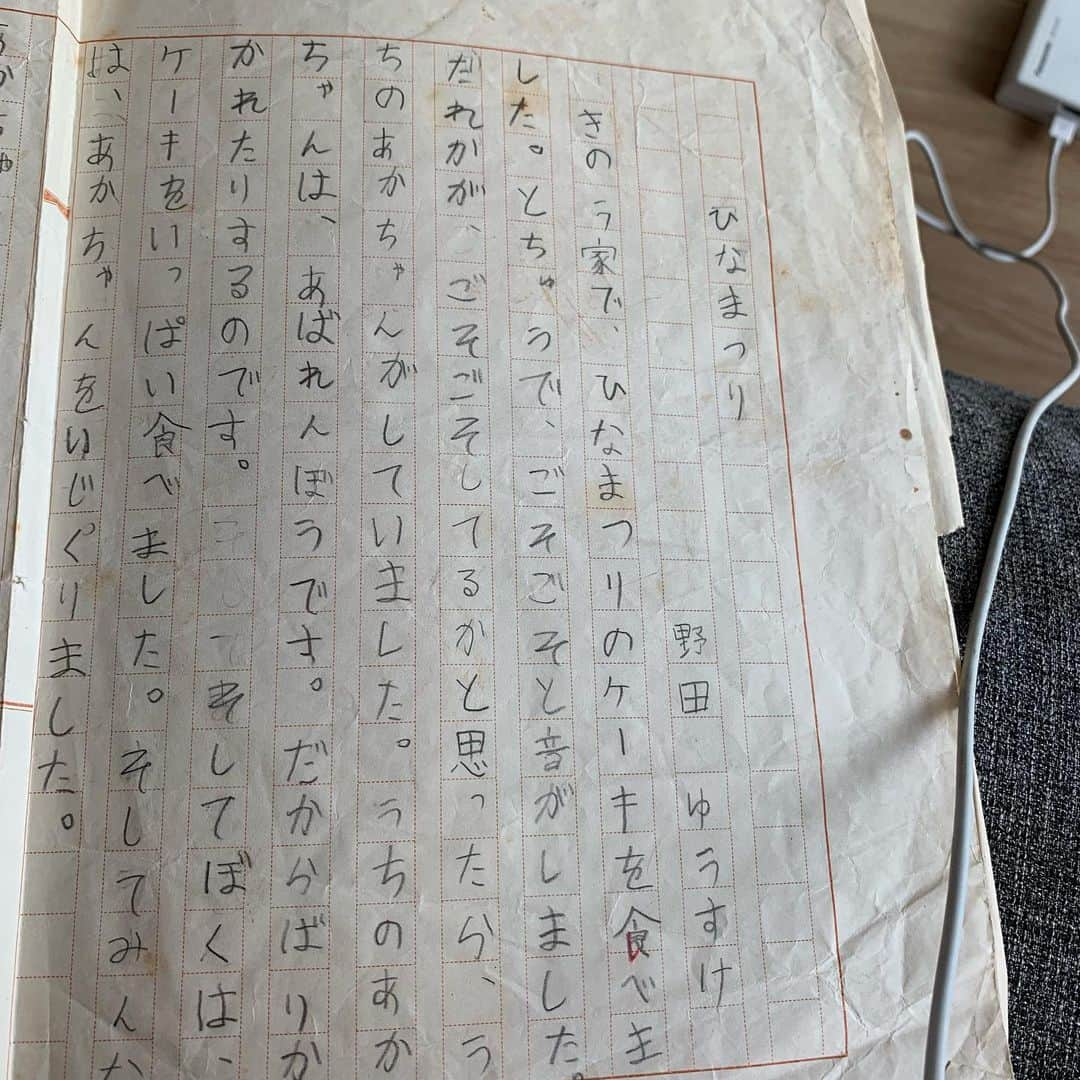 ひなまつり
野田 ゆうすけ
きのう家で、ひなまつりのケーキを食べま
した。とちゅうで、ごそごそと音がしました。
だれかが、ごそごそしてるかと思ったら、う
ちのあかちゃんがしていました。うちのあか
ちゃんは、あばれんぼうです。だからばりか
かれたりするのです。そしてぼくは、
ケーキをいっぱい食べました。そしてみん
は、あかちゃんをいじぐりました。